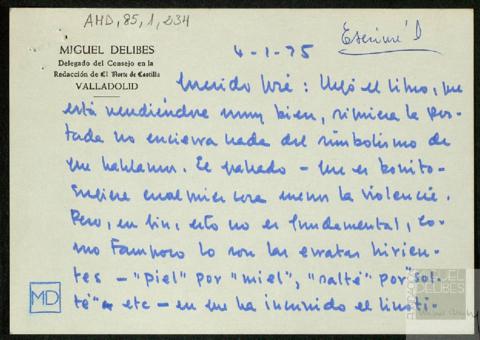 AMD, 85, 1, 234
MIGUEL DELIBES
Delegado del Consejo en la
Redacción de El Norte de Castilla
VALLADOLID
4-1-75
Escribí D
Querido José: Llegó el libro, que
está vendiéndose muy bien, si quiera la por-
tada no encierra nada del simbolismo de
que hablamos. El grabado - que es bonito -
sugiere cualquier cosa menos la violencia.
Pero, en fin, esto no es fundamental, co-
mo tampoco lo son las erratas hirien-
tes - "piel" por "miel", "salté" por "sol-
té" - etc - en que ha incurrido el linoti-
MD
FUNDACIÓN
MIGUEL
DELIBES